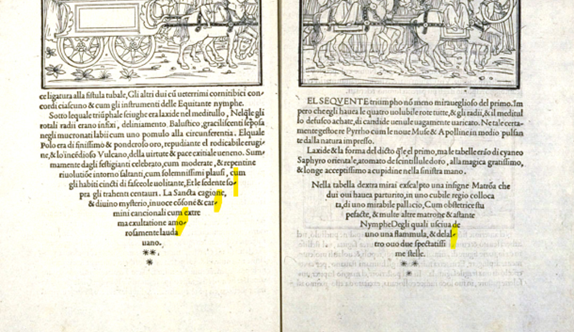 ce ligatura alla fistula tubale, Gli altri dui cũ ueterrimi cornitibici con
cordi ciascuno & cum gli instrumenti delle Equitante nymphe.
Sotto lequale triũphale seiughe era laxide nel meditullo, Nelq̃le gli
rotali radii erano infixi, deliniamento Balustico, graciliscenti seposa
negli mucronati labii cum uno pomulo alla circunferentia. Elquale
Polo era di finissimo & ponderoso oro, repudiante el rodicabile erugi-
ne, & lo incẽdioso Vulcano, della uirtute & pace exitiale ueneno. Sum
mamente dagli festigianti celebrato, cum moderate, & repentine
riuolutiõe intorno saltanti, cum solemnissimi plausi, cum
gli habiti cincti di fasceole uolitante, Et le sedente so-
pra gli trahenti centauri. La Sancta cagione,
& diuino mysterio, inuoce cõsone & car-
mini cancionali cum extre
ma exultatione amo-
rosamente lauda
uano.
EL SEQVENTE triumpho nõ meno miraueglioso del primo. Im
pero che egli hauea le quatro uolubile rote tutte, & gli radii, & il meditul
lo defusco achate, di candide uemule uagamente uaricato. Ne tale certa-
mente gestoe re Pyrrho cum le noue Muse & Apolline in medio pulsan
te dalla natura impresso.
Laxide & la forma del dicto q̃le el primo, ma le tabelle erão di cyaneo
Saphyro orientale, atomato de scintillule doro, alla magica gratissimo,
& longe acceptissimo a cupidine nella sinistra mano.
Nella tabella dextra mirai exscalpto una insigne Matrõa che
dui oui hauea parturito, in uno cubile regio colloca
ta, di uno mirabile pallacio, Cum obstetrice stu
pefacte, & multe altre matrone & astante
Nymphe Degli quali usciua de
uno una flammula, & delal-
tro ouo due spectatissi
me stelle.